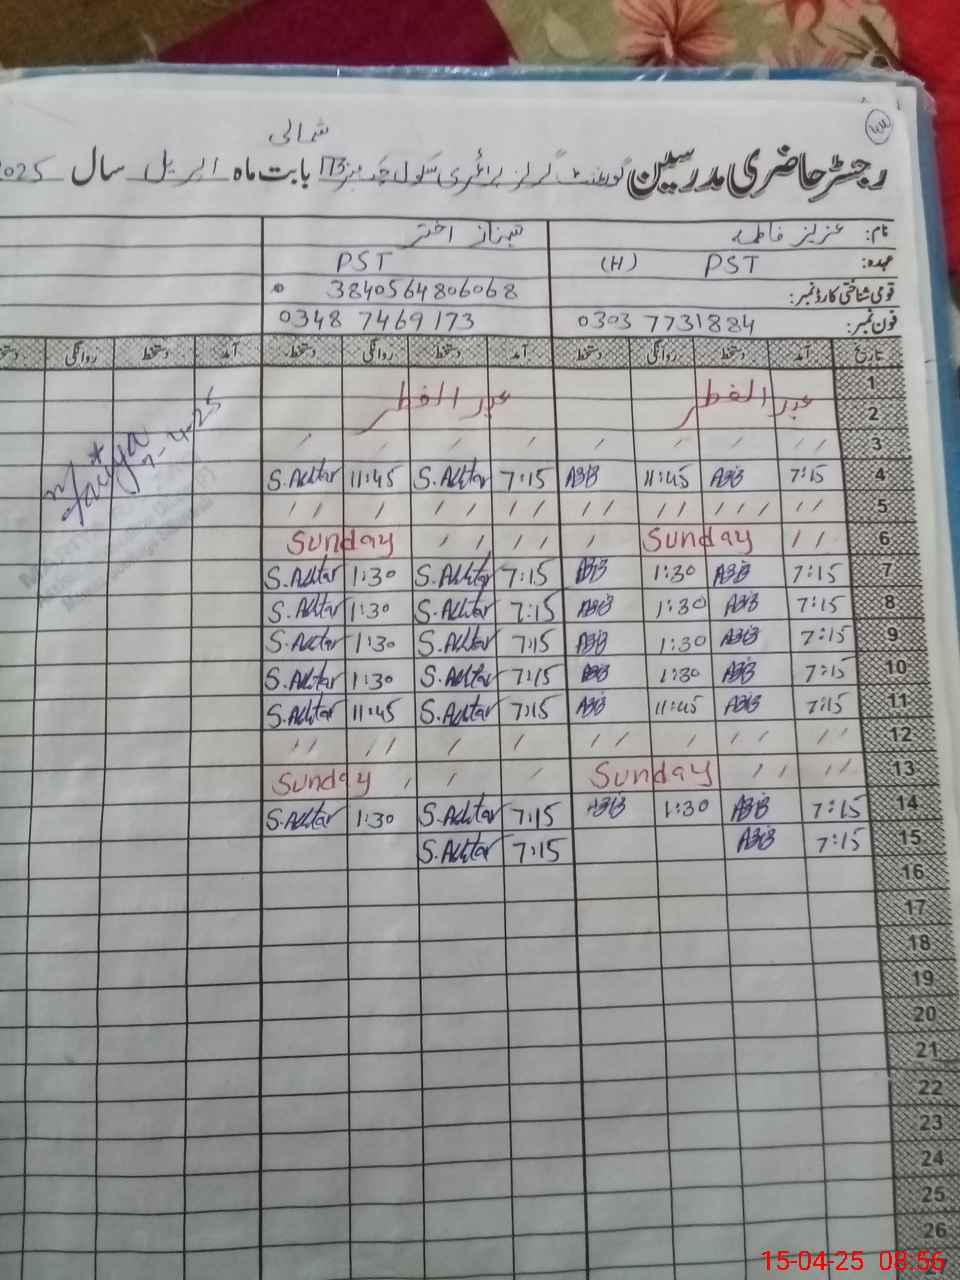 شمالی
رجسٹر حاضری مدرسین گورنمنٹ گرلز پرائمری سکول چک نمبر 173 بابت ماہ اپریل سال 2025
نام: عزیز فاطمہ شہناز اختر
عہدہ: PST (H) PST
قومی شناختی کارڈ نمبر: 3840564806068
فون نمبر: 0303 7731884 0348 7469173
تاریخ آمد دستخط روانگی دستخط آمد دستخط روانگی دستخط آمد دستخط روانگی دستخط
1 عید الفطر عید الفطر
2
3 / / / / / / / /
4 7:15 11:45 7:15 S.Akhtar 11:45 S.Akhtar
5 / / / / / / / /
6 / / Sunday / / / / / Sunday
7 7:15 1:30 7:15 S.Akhtar 1:30 S.Akhtar
8 7:15 1:30 7:15 S.Akhtar 1:30 S.Akhtar
9 7:15 1:30 7:15 S.Akhtar 1:30 S.Akhtar
10 7:15 1:30 7:15 S.Akhtar 1:30 S.Akhtar
11 7:15 11:45 7:15 S.Akhtar 11:45 S.Akhtar
12 / / / / / / / /
13 / / / / Sunday / / / Sunday
14 7:15 1:30 7:15 S.Akhtar 1:30 S.Akhtar
15 7:15 7:15 S.Akhtar
16
17
18
19
20
21
22
23
24
25
26
27
15-04-25 08:56